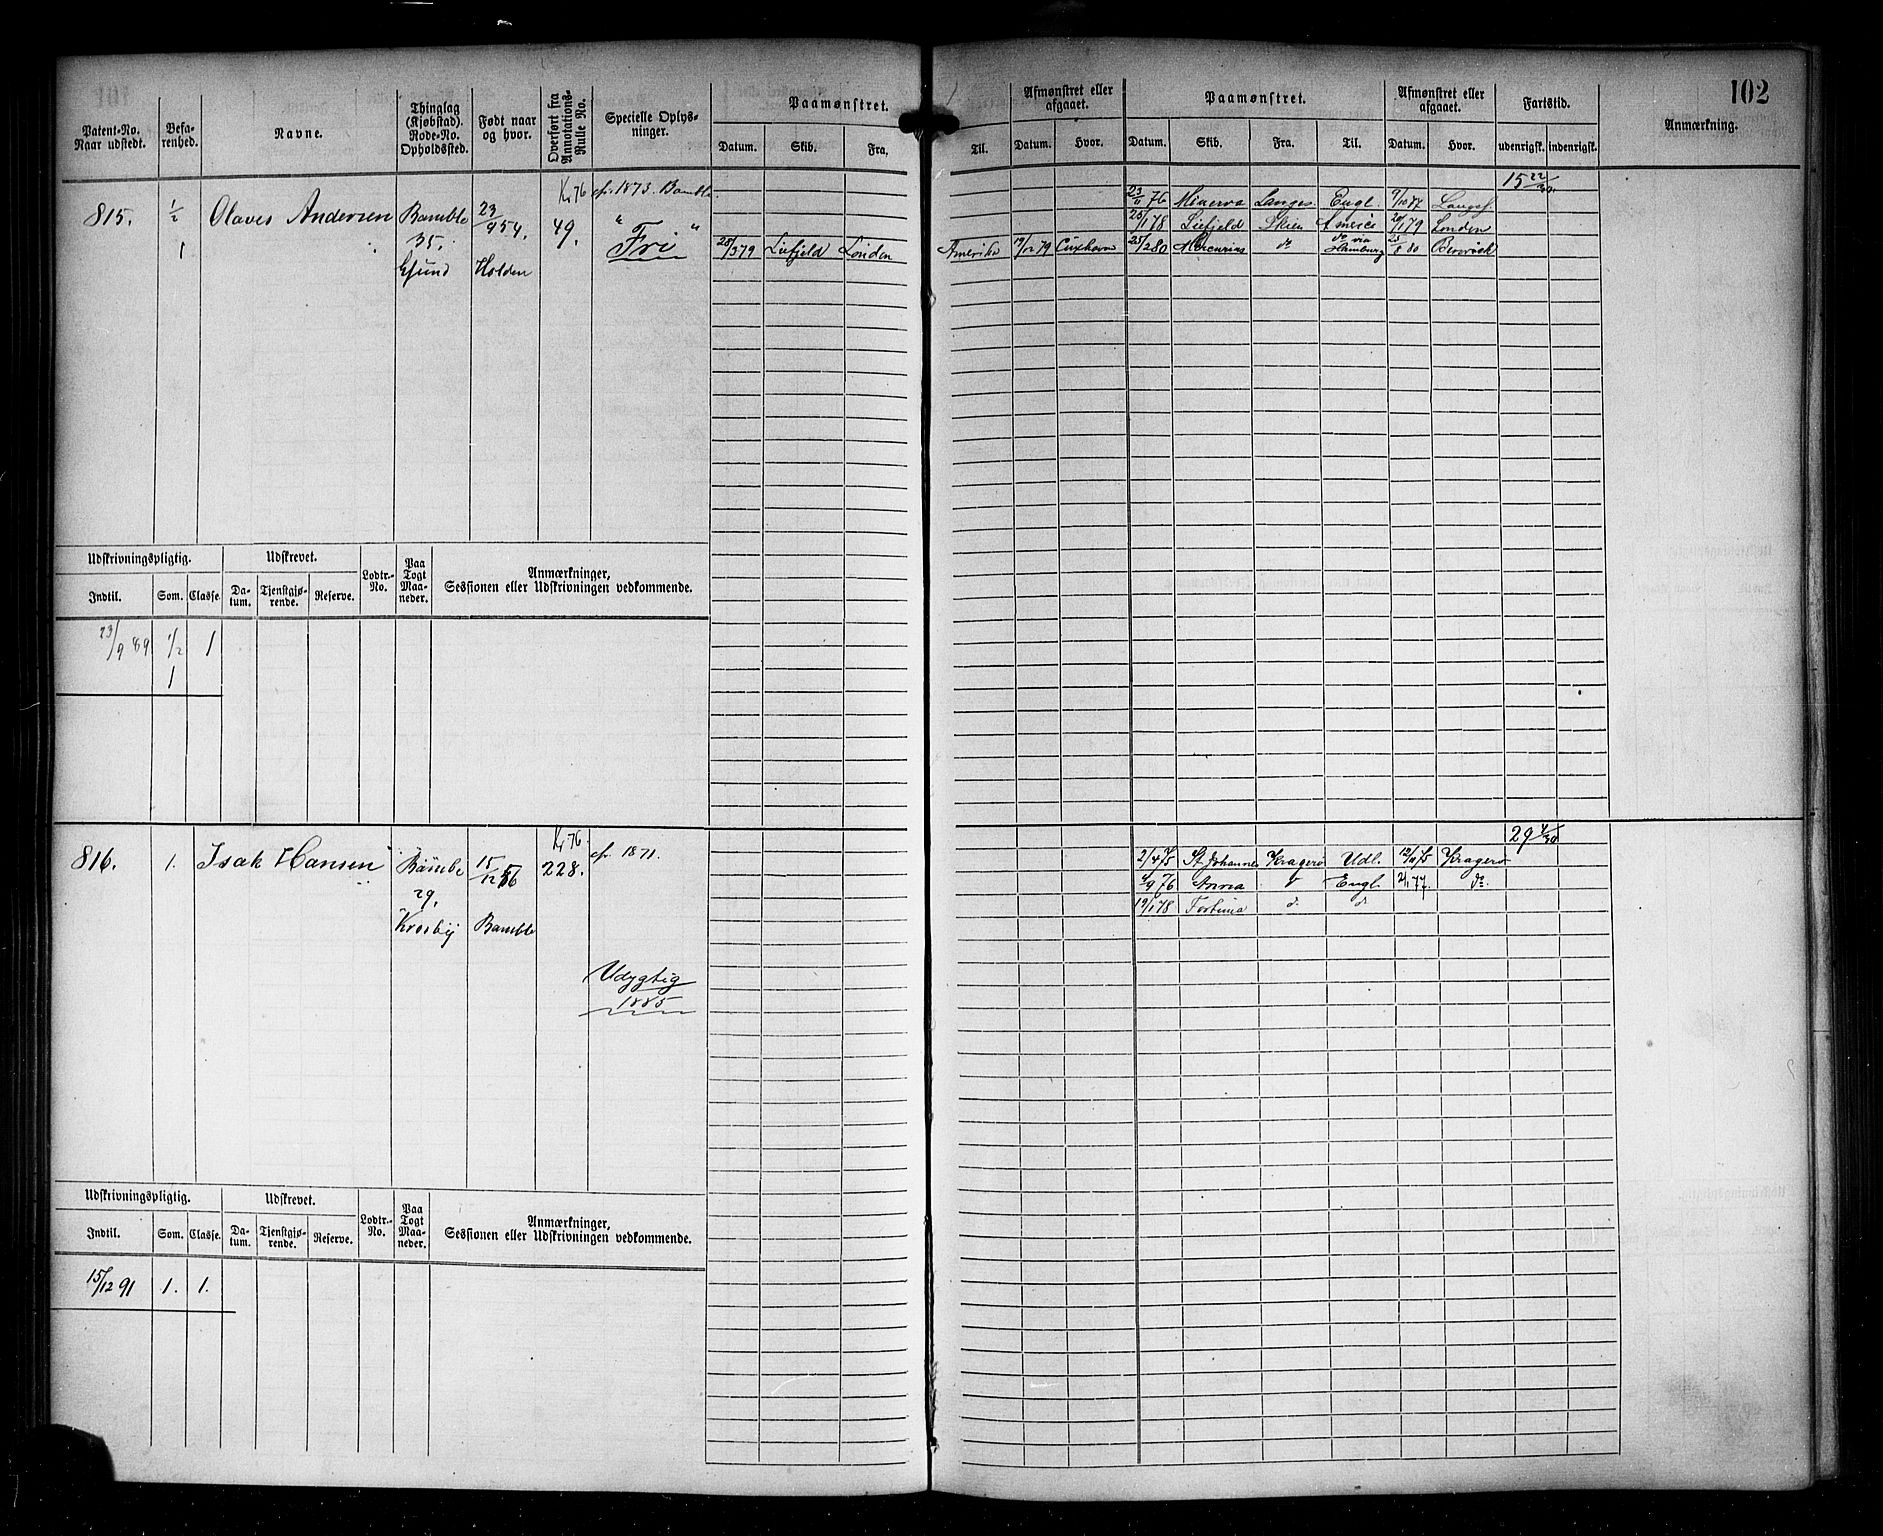 102
Patent-No. Naar udstedt.
Befarenhed.
Navne.
Thinglag (Kjøbstad). Rode-No. Opholdssted.
Født naar og hvor.
Overført fra Annotations-Rulle No.
Specielle Oplysninger.
Paamønstret.
Datum. Skib. Fra, Til.
Afmønstret eller afgaaet.
Datum. Hvor.
Paamønstret.
Datum. Skib. Fra. Til.
Afmønstret eller afgaaet.
Datum. Hvor.
Fartstid.
udenrigsk. indenrigsk.
Anmærkning.
815. 1/2 Olaves Andersen Bamble 23/9 54. 49. 1873. Bamble
1 35. " Fri "
Holden
28/3 79 Liefjeld London Amerika 19/12 79 Cuxhavn
15 22/30
23/11 76 Minerva Langes. Engl.
25/1 78 Liefjeld Skien Americ 20/1 79 London
25/2 80 Mercurius do do via Hamburg
Udskrivningspligtig. Udskrevet. Lodtr.-No. Paa Togt Maaneder. Anmærkninger, Sessionen eller Udskrivningen vedkommende.
Indtil. Som. Classe. Datum. Tjenstgjørende. Reserve.
23/9 89 1/2 1
1
816. 1. Isak Hansen Bamble 15/12 56 228. 1871.
29.
Krosby Bamble
Udygtig
1885
2/4 75 St Johannes Kragerø Udl. 12/11 75 Kragerø
76 Anna Engl. do.
19/1 78 Fortuna d. d.
Udskrivningspligtig. Udskrevet. Lodtr.-No. Paa Togt Maaneder. Anmærkninger, Sessionen eller Udskrivningen vedkommende.
Indtil. Som. Classe. Datum. Tjenstgjørende. Reserve.
15/12 91 1. 1.